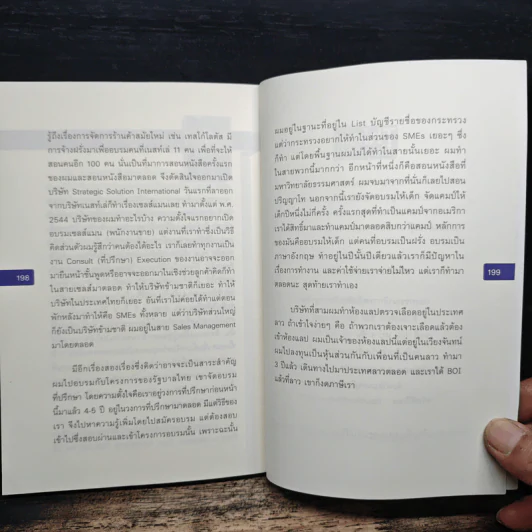 รู้ถึงเรื่องการจัดการร้านค้าสมัยใหม่ เช่น เทสโก้โลตัส มี
การจ้างฝรั่งมาเพื่ออบรมคนที่เนสท์เล่ 11 คน เพื่อที่จะให้
สอนคนอีก 100 คน นั่นเป็นที่มาการสอนหนังสือครั้งแรก
ของผมและสอนหนังสือมาตลอด จึงตัดสินใจออกมาเปิด
บริษัท Strategic Solution International วันแรกที่ลาออก
จากบริษัทเนสท์เล่ก็ทำเรื่องเซลส์แมนเลย ทำมาตั้งแต่ พ.ศ.
2544 บริษัทของผมทำอะไรบ้าง ความตั้งใจแรกอยากเปิด
อบรมเซลส์แมน (พนักงานขาย) แต่งานที่เราทำซึ่งเป็นวิธี
คิดส่วนตัวผมรู้สึกว่าคนต้องให้อะไร เราก็เลยทำทุกงานเป็น
งาน Consult (ที่ปรึกษา) Execution ของงานอาจจะออก
มายืนหน้าชั้นพูดหรืออาจจะออกมาในเชิงช่วยลูกค้าคิดก็ทำ
ในสายเซลส์มาตลอด ทำให้บริษัทข้ามชาติก็เยอะ ทำให้
บริษัทในประเทศไทยก็เยอะ อันที่เราไม่ค่อยได้ทำแต่ตอน
พักหลังมาทำให้คือ SMEs ทั้งหลาย แต่ว่าบริษัทส่วนใหญ่
ก็ยังเป็นบริษัทข้ามชาติ ผมอยู่ในสาย Sales Management
มาโดยตลอด
มีอีกเรื่องสองเรื่องซึ่งคิดว่าอาจจะเป็นสาระสำคัญ
ผมไปอบรมกับโครงการของรัฐบาลไทย เขาจัดอบรม
ที่ปรึกษา โดยความตั้งใจคือเราอยู่วงการที่ปรึกษาก่อนหน้า
นี้มาแล้ว 4-5 ปี อยู่ในวงการที่ปรึกษามาตลอด มีแต่วิธีของ
เรา จึงไปหาความรู้เพิ่มโดยไปสมัครอบรม แต่ต้องสอบ
เข้าไปซึ่งสอบผ่านและเข้าโครงการอบรมนั้น เพราะฉะนั้น
198
ผมอยู่ในฐานะที่อยู่ใน List บัญชีรายชื่อของกระทรวง
แต่ว่ากระทรวงอยากให้ทำในส่วนของ SMEs เยอะๆ ซึ่ง
ก็ทำ แต่โดยพื้นฐานผมไม่ได้ทำในสายนั้นเยอะ ผมทำ
ในสายพวกนี้มากกว่า อีกหน้าที่หนึ่งก็คือสอนหนังสือที่
มหาวิทยาลัยธรรมศาสตร์ ผมจบมาจากที่นั่นก็เลยไปสอน
ปริญญาโท นอกจากนี้เรายังจัดอบรมให้เด็ก จัดแคมป์ให้
เด็กปีหนึ่งไม่กี่ครั้ง ครั้งแรกสุดที่ทำเป็นแคมป์จากอเมริกา
เราได้สิทธิ์มาและทำแคมป์มาตลอดสิบกว่าแคมป์ หลักการ
ของมันคืออบรมให้เด็ก แต่คนที่อบรมเป็นฝรั่ง อบรมเป็น
ภาษาอังกฤษ ทำอยู่ในปีนั้นปีเดียวแล้วเราก็มีปัญหาใน
เรื่องการทำงาน และค่าใช้จ่ายเราจ่ายไม่ไหว แต่เราก็ทำมา
ตลอดนะ สุดท้ายเราทำเอง
บริษัทที่สามผมทำห้องแลปตรวจเลือดอยู่ในประเทศ
ลาว ถ้าเข้าใจง่ายๆ คือ ถ้าพวกเราต้องเจาะเลือดแล้วต้อง
เข้าห้องแลป ผมเป็นเจ้าของห้องแลปนี้แต่อยู่ในเวียงจันทน์
ผมไปลงทุนเป็นหุ้นส่วนกันกับเพื่อนที่เป็นคนลาว ทำมา
3 ปีแล้ว เดินทางไปมาประเทศลาวตลอด และเราได้ BOI
แล้วที่ลาว เขาก็งดภาษีเรา
199